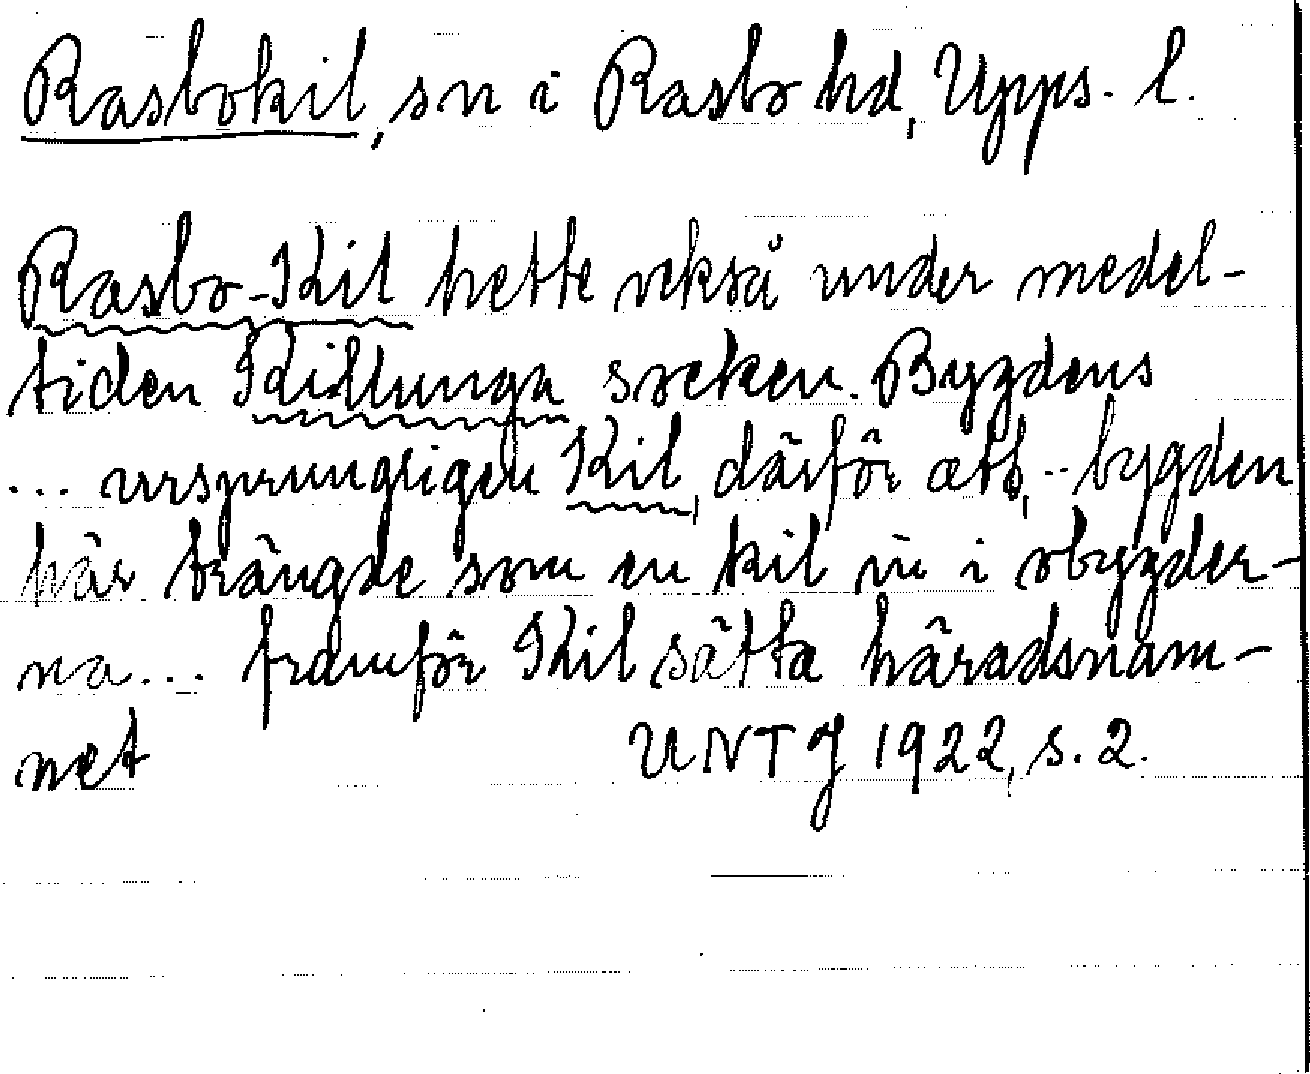 Rasbokil, sn i Rasbo hd, Upps. l.
Rasbo-Kil hette också under medel-
tiden Kidlunga socken. Bygdens
... ursprungligen Kil, därför att, .. bygden
här trängde som en kil in i obygder-
na... framför Kil sätta häradsnam-
net UNT J 1922, s. 2.